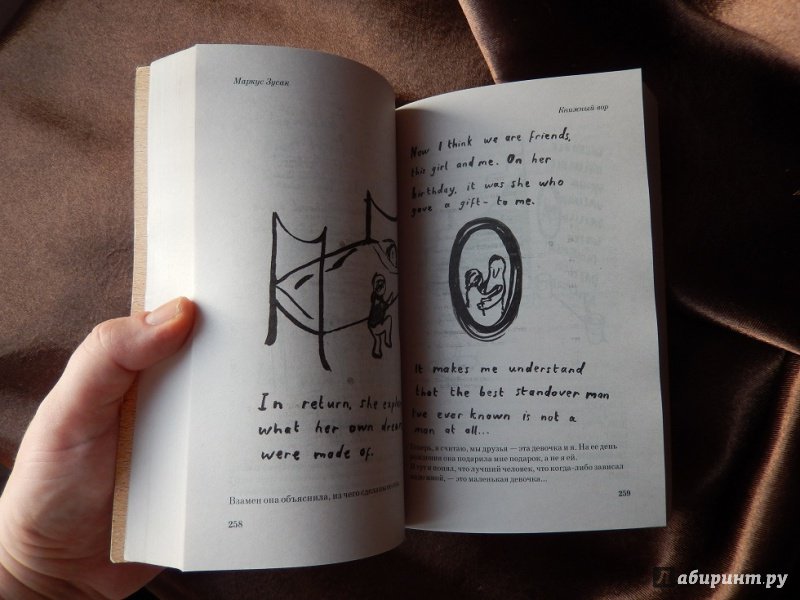 Маркус Зусак
In return, she
what her own
were made of.
Взамен она объяснила, из чего
258
Книжный вор
Now I think we are friends,
this girl and me. On her
birthday, it was she who
gave a gift - to me.
It makes me understand
that the best standover man
I've ever known is not a
man at all...
Теперь, я считаю, мы друзья — эта девочка и я. На ее день
рождения она подарила мне подарок, а не я ей.
И тут я понял, что лучший человек, что когда-либо зависал
надо мной, — это маленькая девочка...
259
Лабиринт.ру